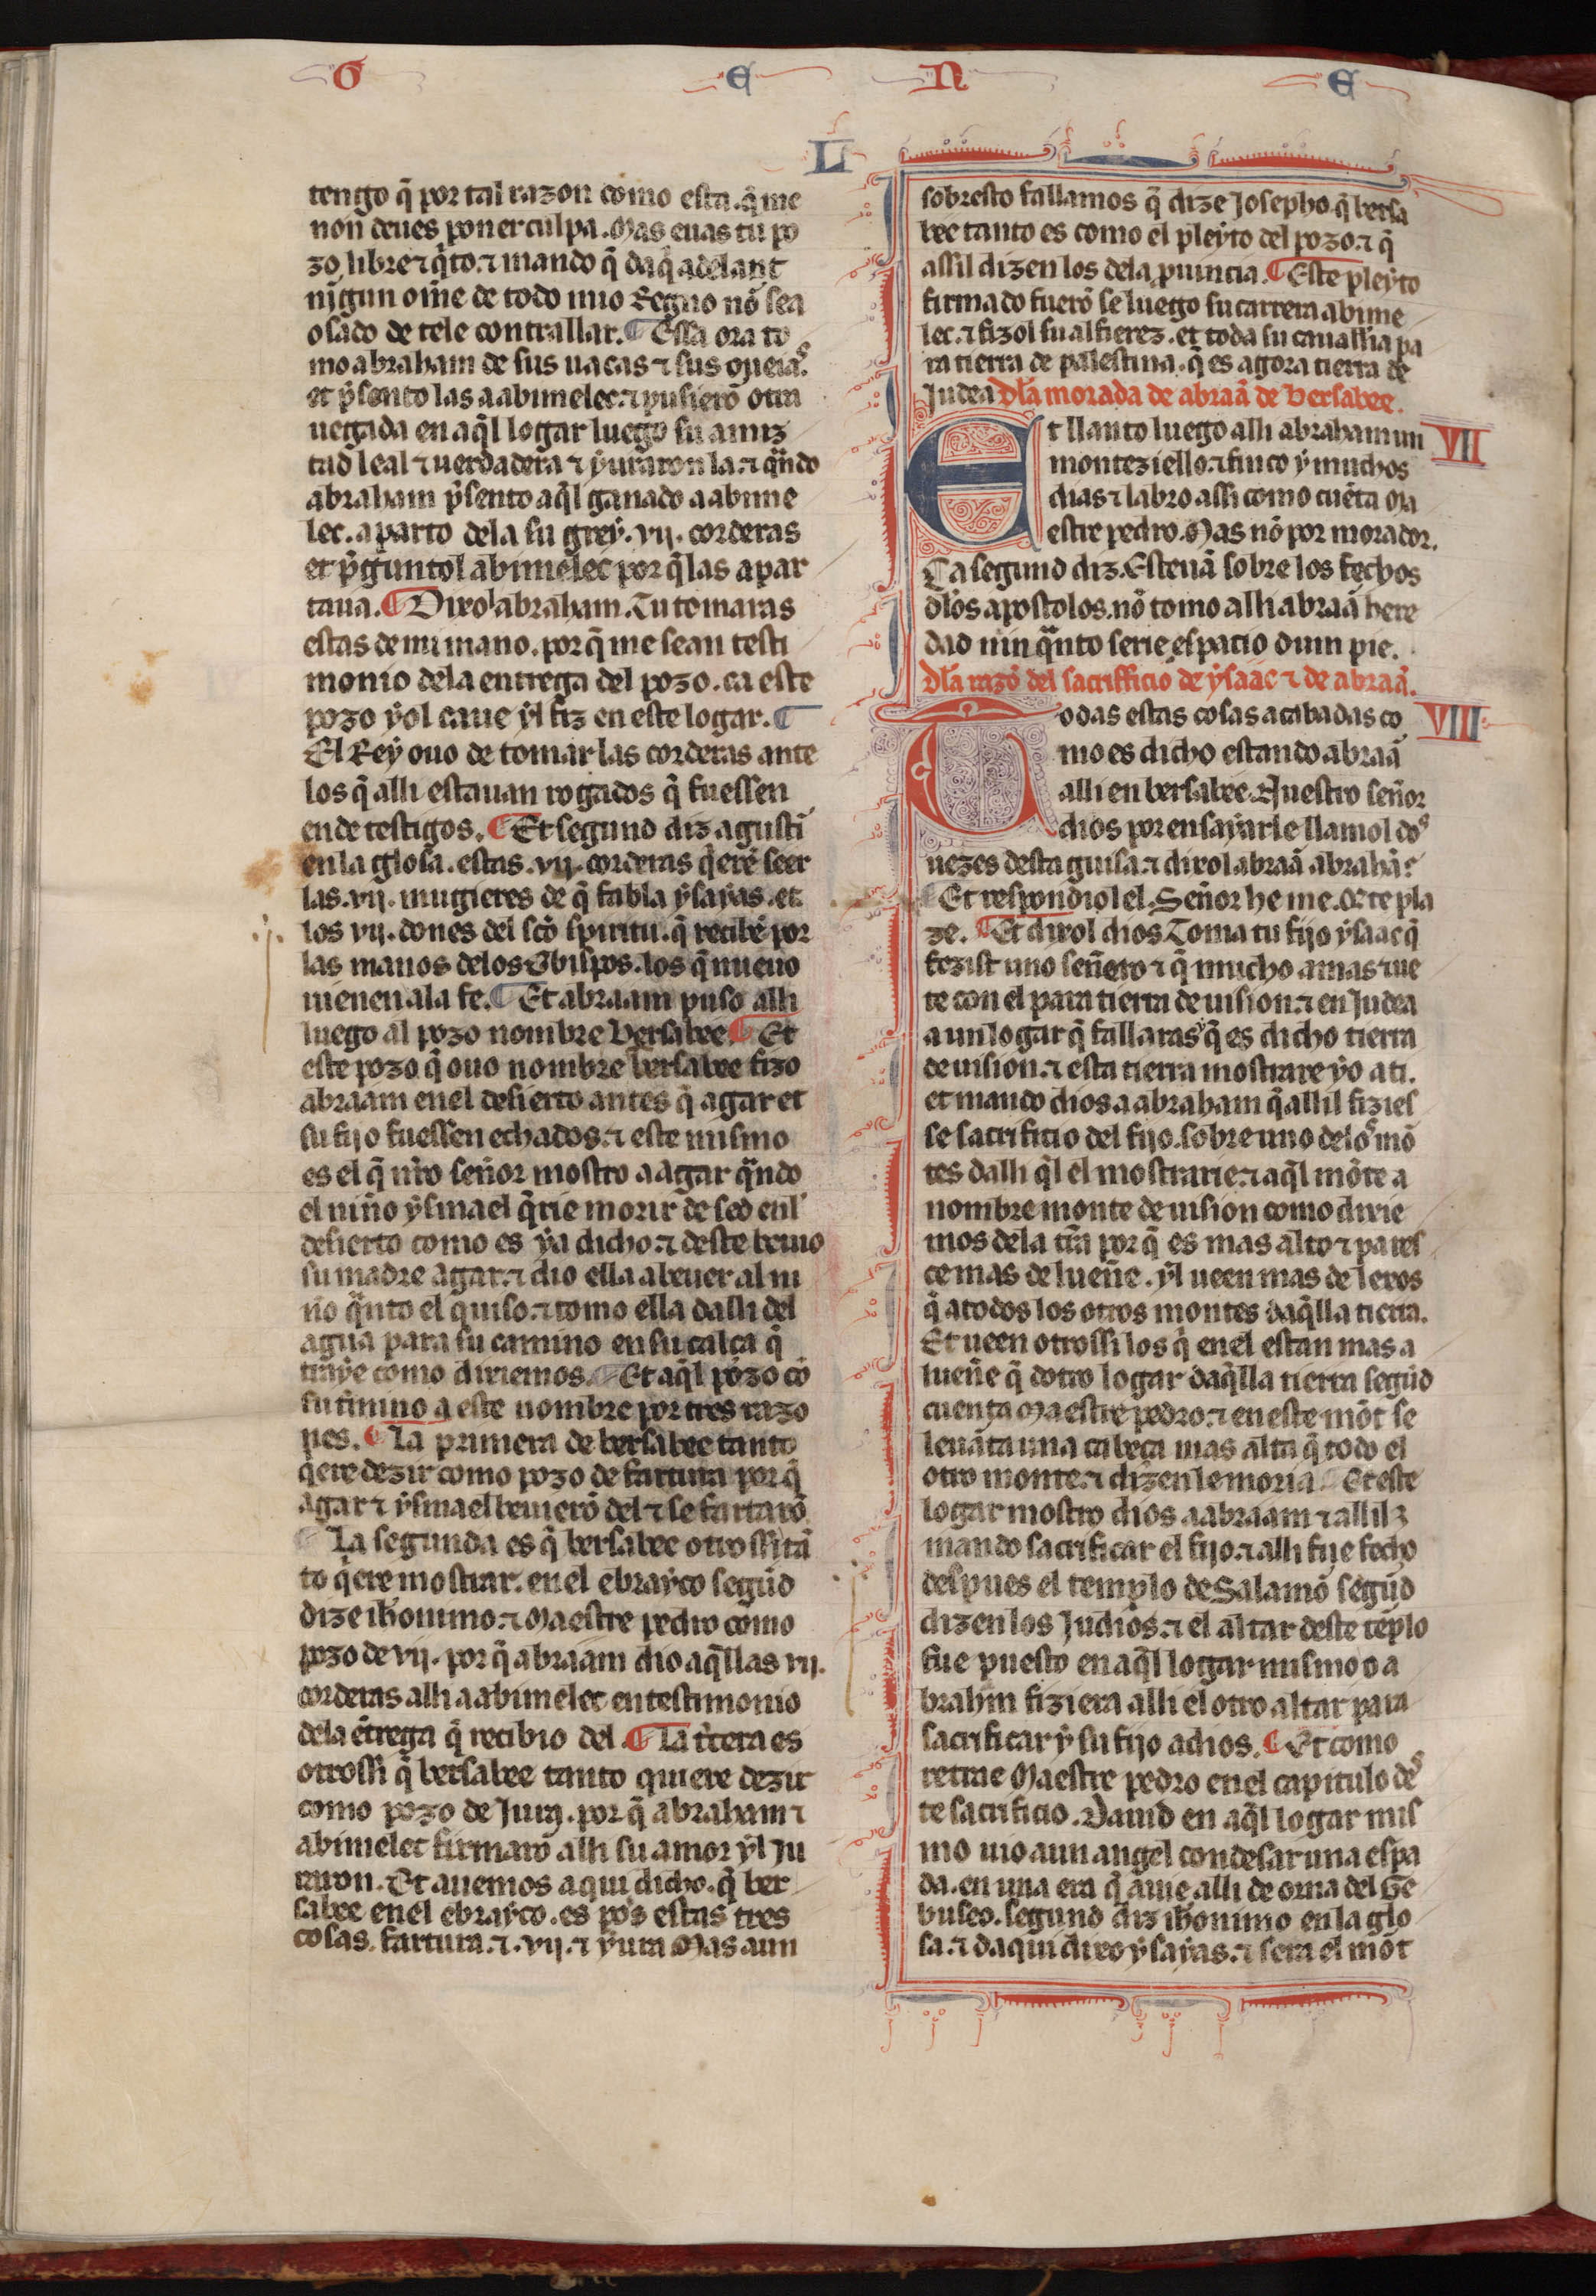 G E N E
LI
tengo q̃ por tal razon como esta. q̃ me
non deues poner culpa. Mas euas tu po
zo libre ⁊ q̃to. ⁊ mando q̃ daq̃ adelant
nĩgun om̃e de todo mio Regno nõ sea
osado de tele contrallar. ¶ Essa ora to
mo abraham de sus uacas ⁊ sus oueias.
et p̃sento las a abimelec. ⁊ pusierõ otra
uegada en aq̃l logar luego su amiz
tad leal ⁊ uerdadera ⁊ yuraron la. ⁊ qñdo
abraham p̃sento aq̃l ganado a abime
lec. aparto dela su grey. vij. corderas
et p̃guntol abimelec por q̃ las apar
taua. ¶ Dixol abraham. Tu tomaras
estas de mi mano. por q̃ me sean testi
monio dela entrega del pozo. ca este
pozo yol caue yl fiz en este logar. ¶
El Rey ouo de tomar las corderas ante
los q̃ alli estauan rogados q̃ fuessen
ende testigos. ¶ Et segund diz agustĩ
en la glosa. estas. vij. corderas q̃erẽ seer
las. vij. mugieres de q̃ fabla ysayas. et
los vij. dones del scõ spiritu. q̃ recibẽ por
las manos delos Obispos. los q̃ nueuo
uienen ala fe. ¶ Et abraam puso alli
luego al pozo nombre Bersabee. ¶ Et
este pozo q̃ ouo nombre bersabee fizo
abraam en el desierto antes q̃ agar et
su fijo fuessen echados. ⁊ este mismo
es el q̃ nr̃o señor mostro a agar qñdo
el niño ysmael q̃rie morir de sed enl
desierto como es ya dicho. ⁊ deste beuio
su madre agar. ⁊ dio ella a beuer al ni
ño q̃nto el quiso. ⁊ tomo ella dalli del
agua para su camino en su calça q̃
traye como dixiemos. ¶ Et aq̃l pozo cõ
su t̃mino a este nombre por tres razo
nes. ¶ La primera de bersabee tanto
q̃ere dezir como pozo de fartura por q̃
agar ⁊ ysmael beuierõ del ⁊ se fartarõ.
¶ La segunda es q̃ bersabee otrossi tã
to q̃ere mostrar. en el ebrayco segũd
dize ih̃onimo. ⁊ Maestre pedro como
pozo de vij. por q̃ abraam dio aq̃llas vij.
corderas alli a abimelec en testimonio
dela ẽtrega q̃ recibio del. ¶ La t̃cera es
otrossi q̃ bersabee tanto quiere dezir
como pozo de Jura. por q̃ abraham ⁊
abimelec firmarõ alli su amor yl Ju
raron. Et auemos aqui dicho. q̃ ber
sabee en el ebrayco. es pos estas tres
cosas. fartura. ⁊. vij. ⁊ yura Mas aun
sobresto fallamos q̃ dize Josepho. q̃ bersa
bee tanto es como el pleyto del pozo. ⁊ q̃
assil dizen los dela puincia. ¶ Este pleyto
firmado fuerõ se luego su carrera abime
lec. ⁊ fizol su alfierez. et toda su caualłia pa
ra tierra de palestina. q̃ es agora tierra de
Judea Dl̃a morada de abraã de Bersabee.
VII
Et llanto luego alli abraham un
monteziello. ⁊ finco y muchos
dias ⁊ labro assi como cuẽta Ma
estre pedro. Mas nõ por morador.
Ca segund diz. Esteuã sobre los fechos
dlõs apostolos. nõ tomo alli abraã here
dad nin q̃nto serie espacio dum pie.
Dl̃a razõ del sacrifficio de ysaac ⁊ de abraã.
VIII
Todas estas cosas acabadas co
mo es dicho estando abraã
alli en bersabee. Nuestro señor
dios por ensayarle llamol dos
uezes desta guisa. ⁊ dixol abraã abrahã.
¶ Et respondiol el. Señor he me. q̃ te pla
ze. ¶ Et dixol dios Toma tu fijo ysaac q̃
fezist uno señero ⁊ q̃ mucho amas ⁊ ue
te con el para tierra de uision. ⁊ en Judea
a un logar q̃ fallaras y q̃ es dicho tierra
de uision. ⁊ esta tierra mostrare yo a ti.
et mando dios a abraham q̃ allil fizies
se sacrificio del fijo. sobre uno delos mõ
tes dalli q̃l el mostrarie. ⁊ aq̃l mõte a
nombre monte de uision como dixie
mos dela tr̃a por q̃ es mas alto ⁊ pares
ce mas de lueñe. yl ueen mas de lexos
q̃ a todos los otros montes daq̃lla tierra.
Et ueen otrossi los q̃ en el estan mas a
lueñe q̃ dotro logar daq̃lla tierra segũd
cuenta Maestre pedro. ⁊ en este mõt se
leuãta una cabeça mas alta q̃ todo el
otro monte. ⁊ dizen le moria. ¶ Et este
logar mostro dios a abraam ⁊ allil
mando sacrificar el fijo. ⁊ alli fue fecho
despues el templo de Salamõ segũd
dizen los Judios. ⁊ el altar deste tẽplo
fue puesto en aq̃l logar mismo o a
brahm fiziera alli el otro altar para
sacrificar y su fijo a dios. ¶ Et como
retrae Maestre pedro en el capitulo des
te sacrificio. Dauid en aq̃l logar mis
mo uio a un angel condesar una espa
da. en una era q̃ auie alli de orna del Ge
buseo. segund diz ih̃onimo en la glo
sa. ⁊ daqui dixo ysayas. ⁊ sera el mõt